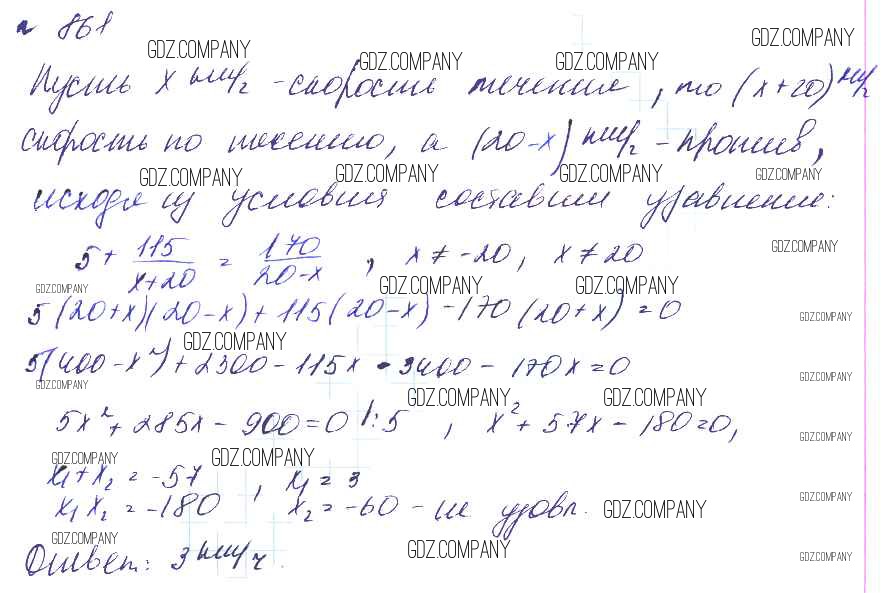 № 861
Пусть x км/ч - скорость течения, то (x+20) км/ч
скорость по течению, а (20-x) км/ч - против,
исходя из условия составим уравнение:
5 + 115/(x+20) = 170/(20-x) , x ≠ -20, x ≠ 20
5(20+x)(20-x) + 115(20-x) - 170(20+x) = 0
5(400-x²) + 2300 - 115x - 3400 - 170x = 0
5x² + 285x - 900 = 0 |:5 , x² + 57x - 180 = 0,
x₁+x₂ = -57 , x₁ = 3
x₁x₂ = -180 x₂ = -60 - не удовл.
Ответ: 3 км/ч.
GDZ.COMPANY GDZ.COMPANY GDZ.COMPANY GDZ.COMPANY
GDZ.COMPANY GDZ.COMPANY GDZ.COMPANY GDZ.COMPANY
GDZ.COMPANY
GDZ.COMPANY GDZ.COMPANY GDZ.COMPANY
GDZ.COMPANY
GDZ.COMPANY
GDZ.COMPANY GDZ.COMPANY
GDZ.COMPANY GDZ.COMPANY
GDZ.COMPANY
GDZ.COMPANY GDZ.COMPANY
GDZ.COMPANY GDZ.COMPANY
GDZ.COMPANY GDZ.COMPANY
GDZ.COMPANY